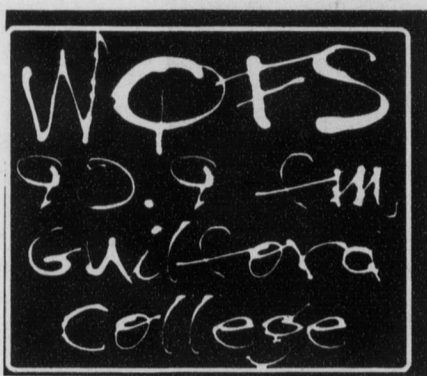 WQFS
90.9 fm,
Guilford
College